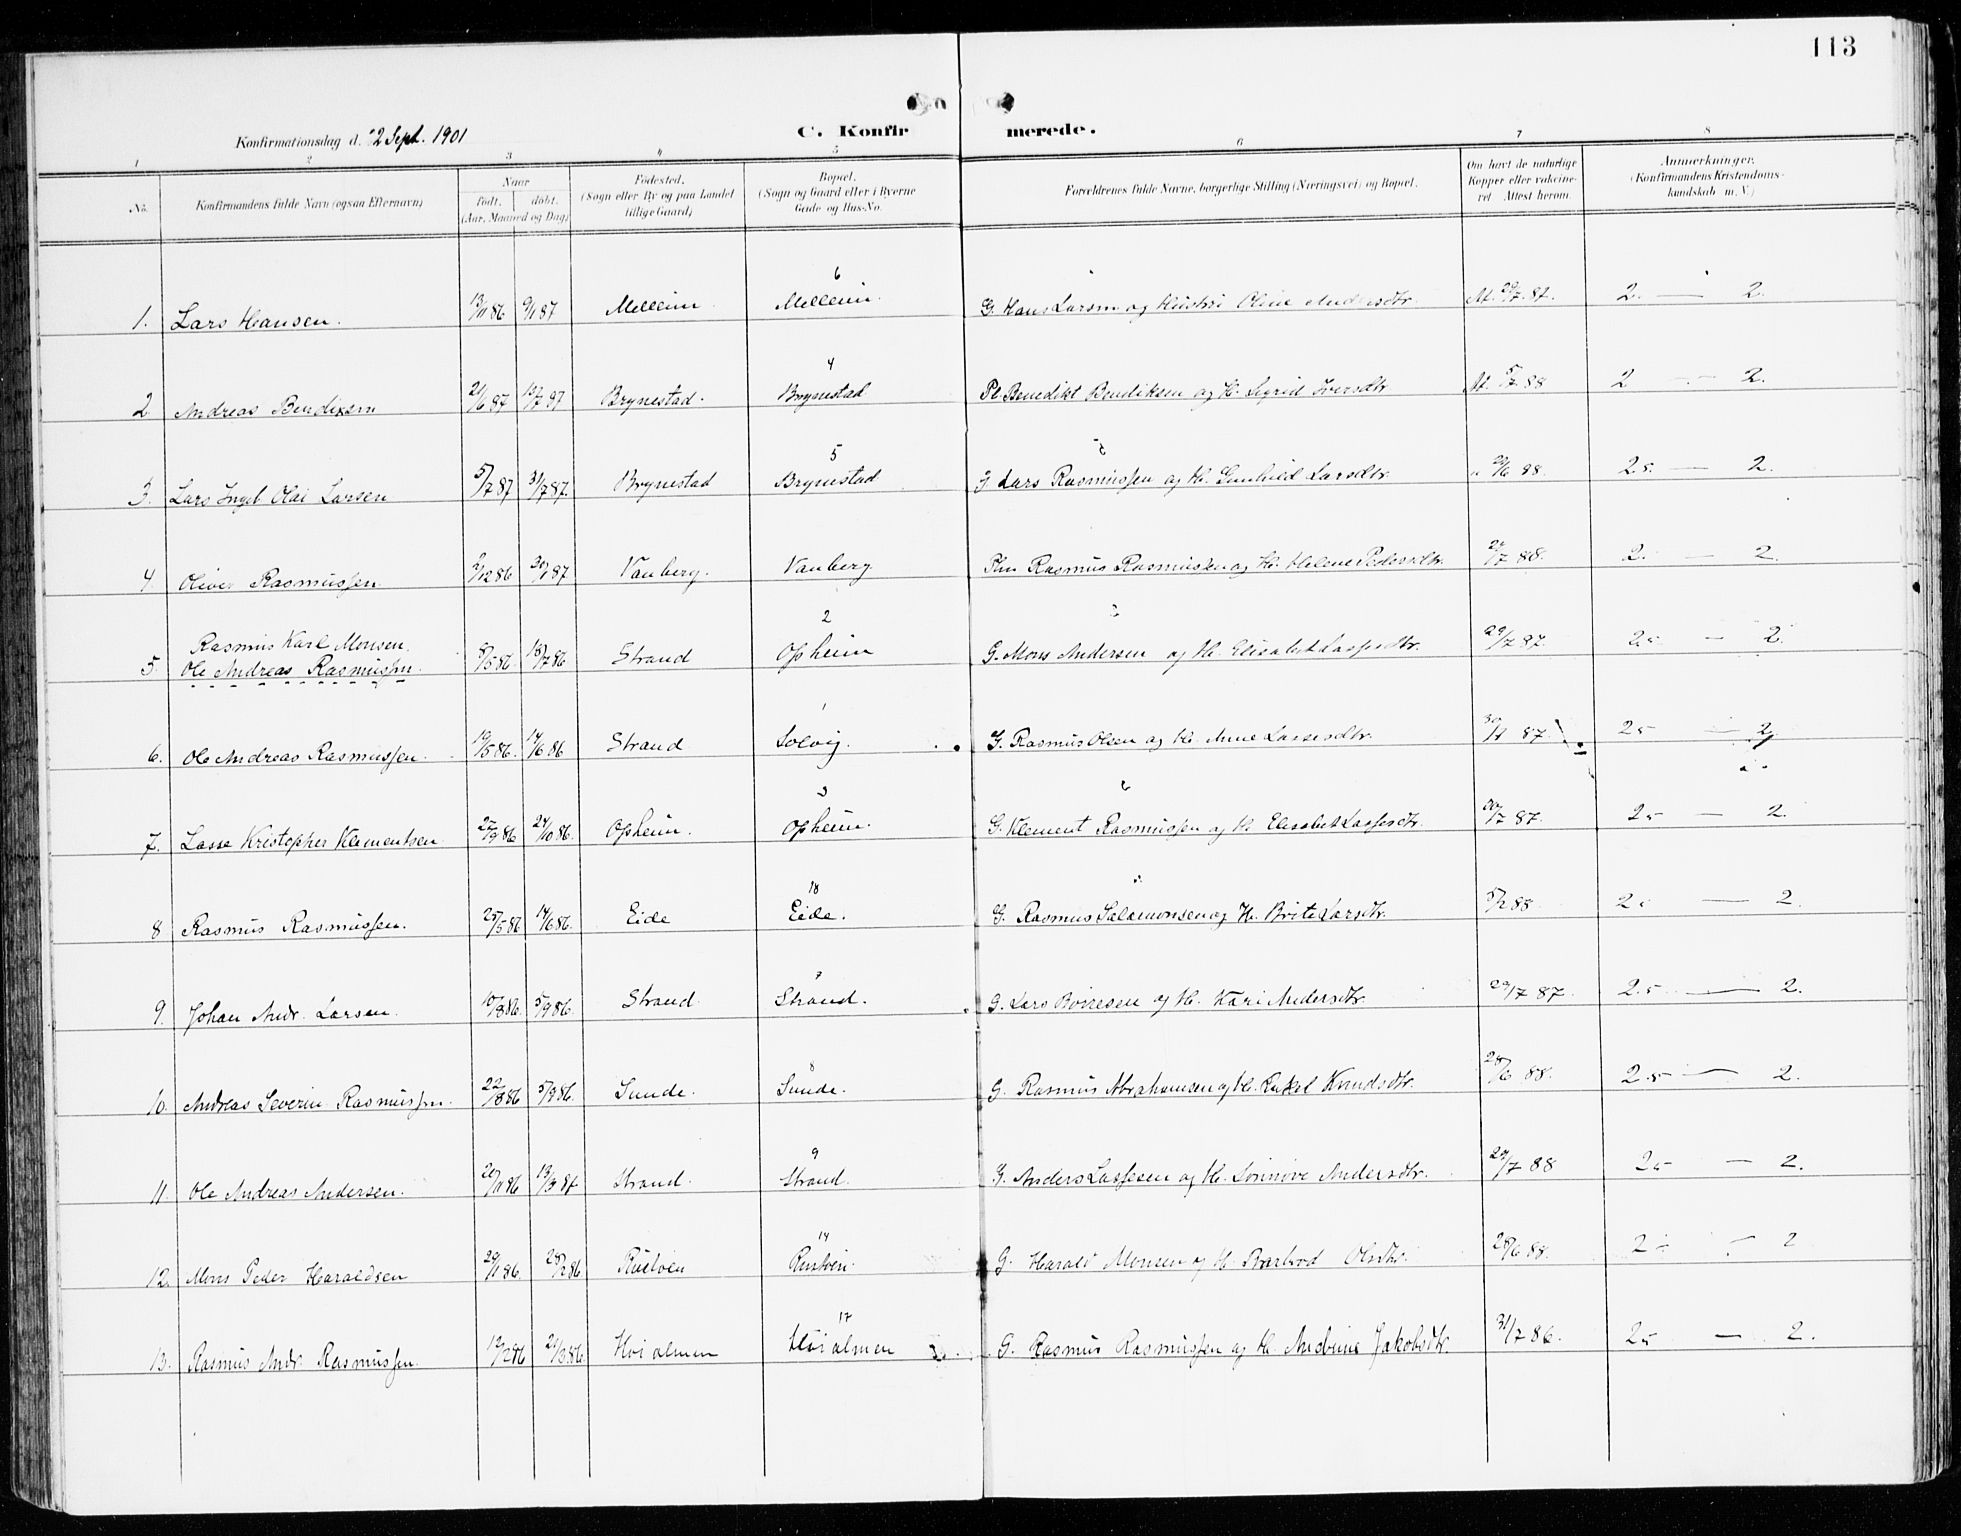 113
C. Konfirmerede.
Konfirmationsdag d. 2 Sept. 1901
1 2 3 4 5 6 7 8
No. Konfirmandens fulde Navn (ogsaa Efternavn) Naar født, døbt. (Aar, Maaned og Dag) Fødested. (Sogn eller By og paa Landet tillige Gaard) Bopæl. (Sogn og Gaard eller i Byerne Gade og Hus-No. Forældrenes fulde Navne, borgerlige Stilling (Næringsvei) og Bopæl. Om havt de naturlige Kopper eller vakcineret. Attest herom. Anmerkninger. (Konfirmandens Kristendomskundskab m. V.)
6
1. Lars Hansen. 13/11 86 9/1 87 Melleim Melleim. G. Hans Larsen og Hustru Oline Andersdtr. At. 29/7 87. 2. — 2.
4
2 Andreas Bendixen 21/6 87 Brynestad. Brynestad Pl. Benedikt Bendiksen og H. Sigrid Iversdtr. At. 88 2 — 2.
5
3. Lars Ingeb. Olai Larsen 5/7 87 31/7 87. Brynestad Brynestad Lars Rasmussen og H. Gunhild Larsdtr. 2.5 — 2.
4 Oliver Rasmussen 2/12 86 30/1 87 Vanberg. Vanberg Rasmus Rasmussen og H. Helene Pedersdtr. 29/7 88 2. — 2.
2
Rasmus Karl Monsen.
5. Ole Andreas Rasmussen. 8/5 86. 18/7 86 Strand Opheim G. Mons Andersen og H. Elisabet Lassesdtr. 29/7 87. 2.5 — 2.
1
6. Ole Andreas Rasmussen. 19/5 86. 14/6 86 Strand Solvig. G. Rasmus Olsen og H. Anne Lassesdtr. 87 25 — 2
3
7. Lasse Kristopher Klementsen 27/9 86 24/10 86. Opheim. Opheim. G. Klement Rasmussen og H. Elisabet Lassesdtr. 87. 25 — 2.
18
8 Rasmus Rasmussen. 25/5 86 14/6 86. Eide Eide. G. Rasmus Salamonsen og H. Brite Larsdtr. 88. 2. — 2.
7
9. Johan Andr. Larsen. 10/8 86. 5/9 86. Strand. Strand. G. Lars Børresen og H. Kari Andersdtr. 29/7 87. 2.5 — 2.
8
10. Andreas Severin Rasmussen. 22/8 86 5/9 86. Sunde. Sunde. G. Rasmus Abrahamsen og H. Rakel Knudsdtr. 28/6 88. 2.5 — 2.
9
11. Ole Andreas Andersen. 20/11 86 13/3 87 Strand. Strand. G. Anders Lassesen og H. Sønnøve Andersdtr. 29/7 88 25 — 2.
14
12. Mons Peder Haraldsen 29/1 86. 28/2 86 Rustøen Rustøen. G. Harald Monsen og H. Barbrod Olsdtr. 28/6 88. 2 — 2
17
13. Rasmus Andr. Rasmussen. 12/2 86 21/3 86. Hoialmen Hoialmen G. Rasmus Rasmussen og H. Jakobsdtr. 31/7 86. 25 — 2.